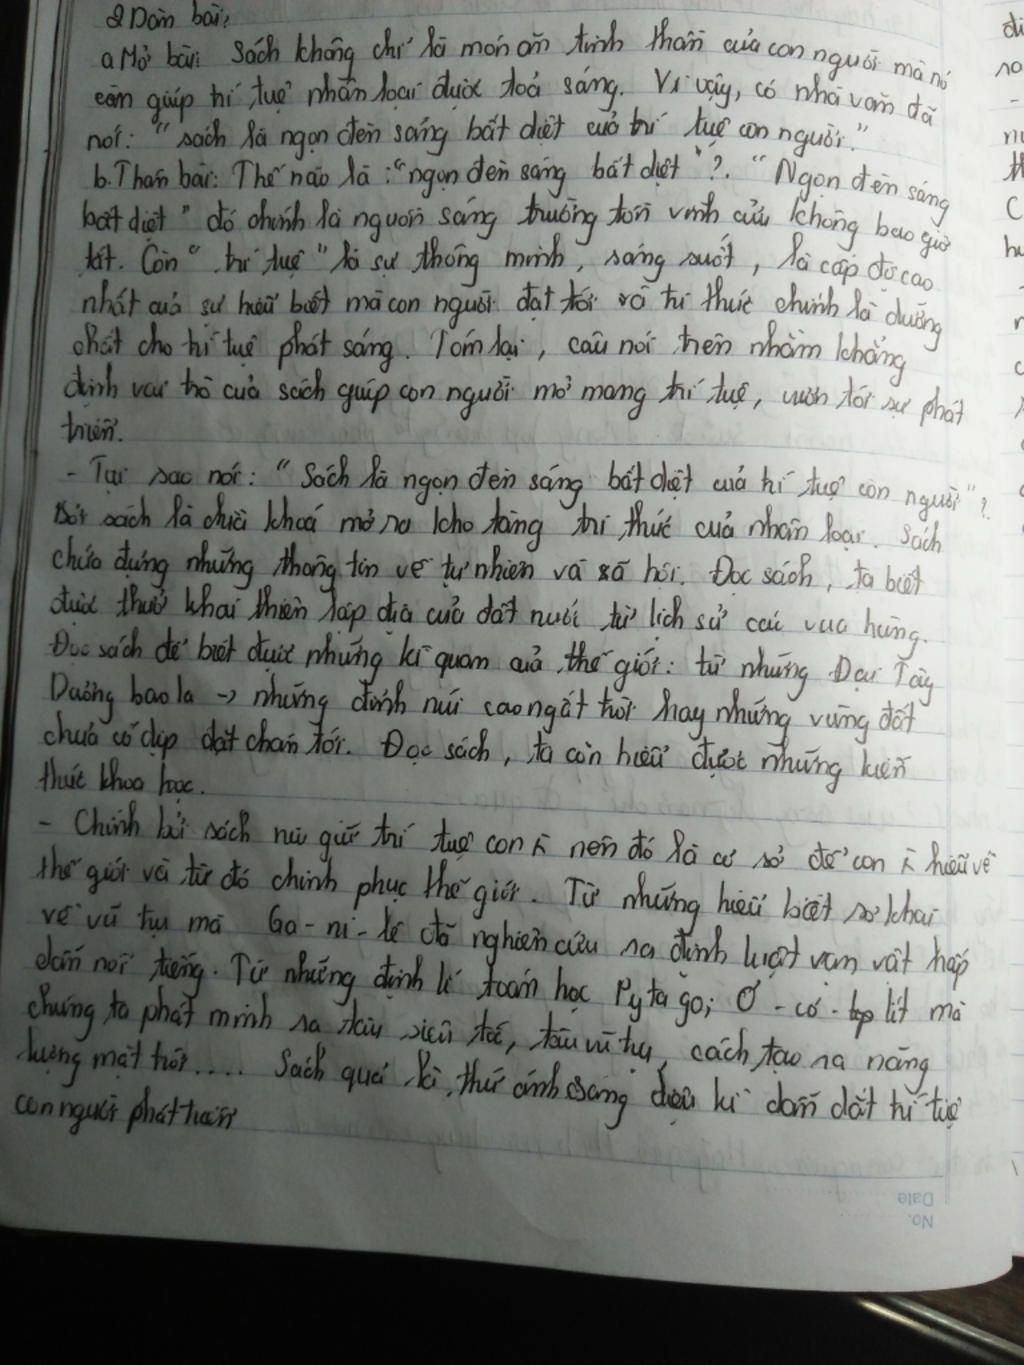 2 Dàn bài:
a Mở bài: Sách không chỉ là món ăn tinh thần của con người mà nó
còn giúp trí tuệ nhân loại được toả sáng. Vì vậy, có nhà văn đã
nói: "sách là ngọn đèn sáng bất diệt của trí tuệ con người."
b. Thân bài: Thế nào là: "ngọn đèn sáng bất diệt"?. "Ngọn đèn sáng
bất diệt" đó chính là nguồn sáng trường tồn vĩnh cửu không bao giờ
tắt. Còn "trí tuệ" là sự thông minh, sáng suốt, là cấp độ cao
nhất của sự hiểu biết mà con người đạt tới và tri thức chính là dưỡng
chất cho trí tuệ phát sáng. Tóm lại, câu nói trên nhằm khẳng
định vai trò của sách giúp con người mở mang trí tuệ, vươn tới sự phát
triển.
- Tại sao nói: "Sách là ngọn đèn sáng bất diệt của trí tuệ con người"?.
Bởi sách là chìa khoá mở ra kho tàng tri thức của nhân loại. Sách
chứa đựng những thông tin về tự nhiên và xã hội. Đọc sách, ta biết
được thuở khai thiên lập địa của đất nước từ lịch sử các vua hùng.
Đọc sách để biết được những kì quan của thế giới: từ những Đại Tây
Dương bao la -> những đỉnh núi cao ngất trời hay những vùng đất
chưa có dịp đặt chân tới. Đọc sách, ta còn hiểu được những kiến
thức khoa học.
- Chính bởi sách núi giữ trí tuệ con ꜰ̀ nên đó là cơ sở để con ꜰ̀ hiểu về
thế giới và từ đó chinh phục thế giới. Từ những hiểu biết sơ khai
về vũ trụ mà Ga-ni-lê đã nghiên cứu ra định luật vạn vật hấp
dẫn nổi tiếng. Từ những định lí toán học Pytago; Ơ-cơ-lit mà
chúng ta phát minh ra tàu siêu tốc, tàu vũ trụ, cách tạo ra năng
lượng mặt trời.... Sách quả là thứ ánh sáng diệu kì dẫn dắt trí tuệ
con người phát triển
No.
Date